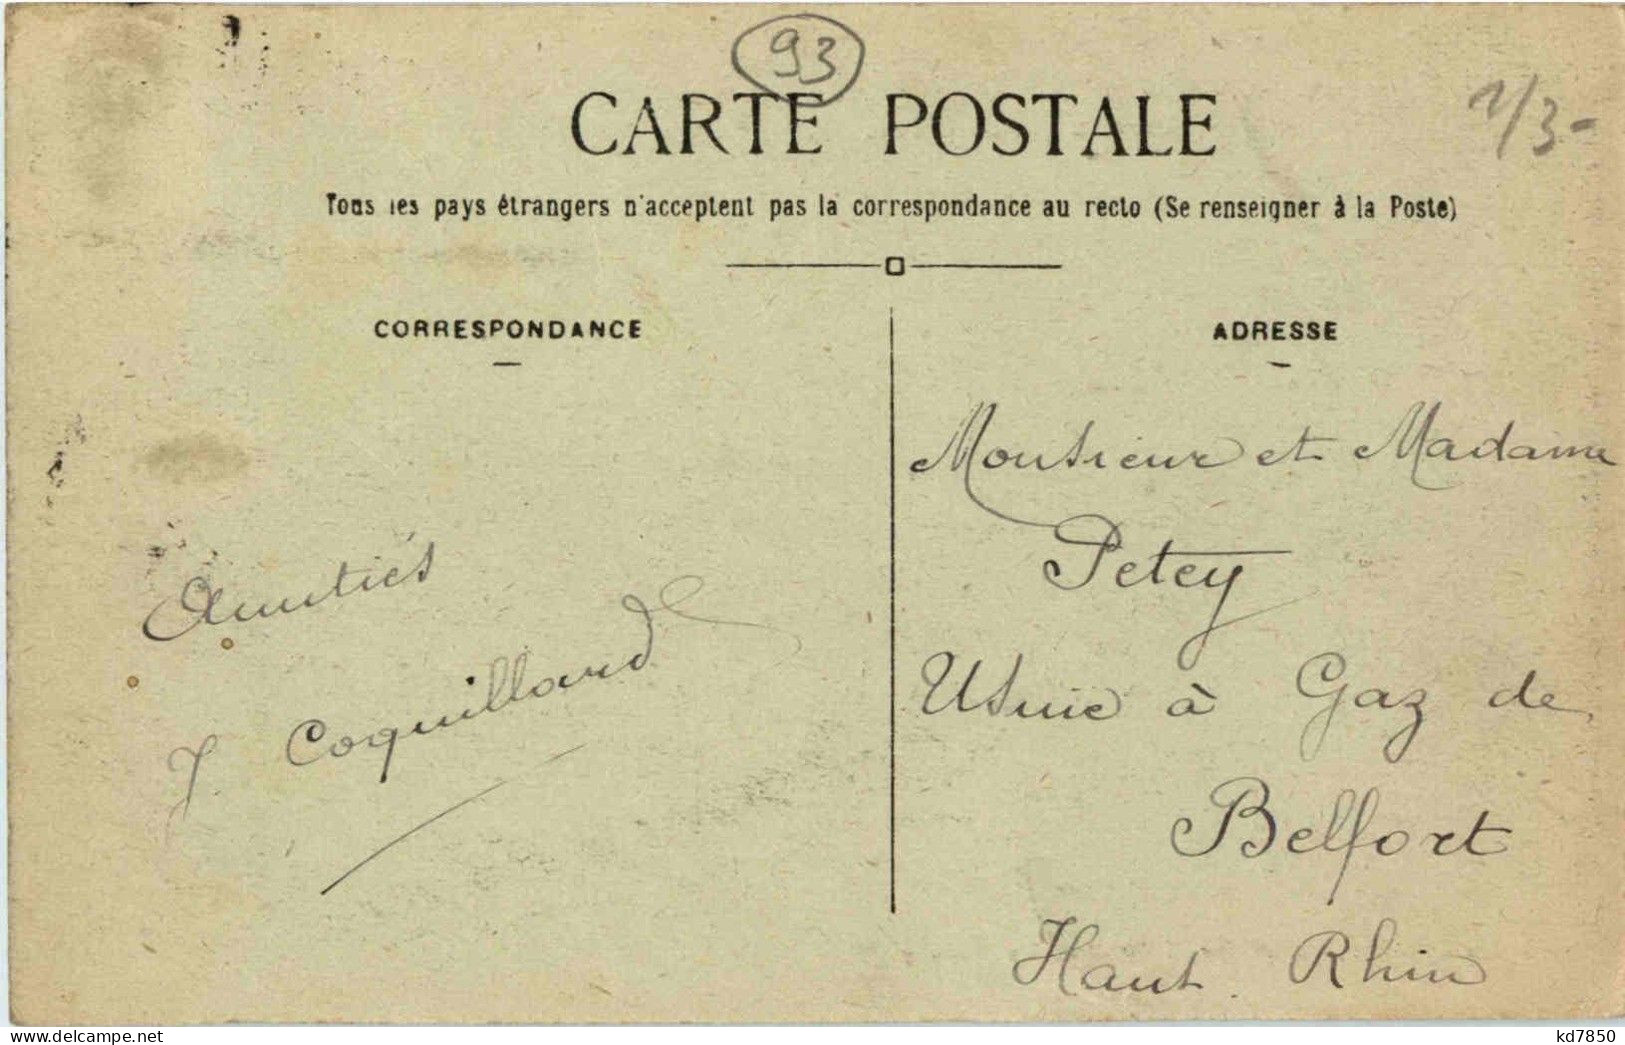 93
1/3-
CARTE POSTALE
Tous les pays étrangers n'acceptent pas la correspondance au recto (Se renseigner à la Poste)
CORRESPONDANCE
Amitiés
J. Coquillard
ADRESSE
Monsieur et Madame
Petey
Usine à Gaz de
Belfort
Haut. Rhin
delcampe.net
kd7850